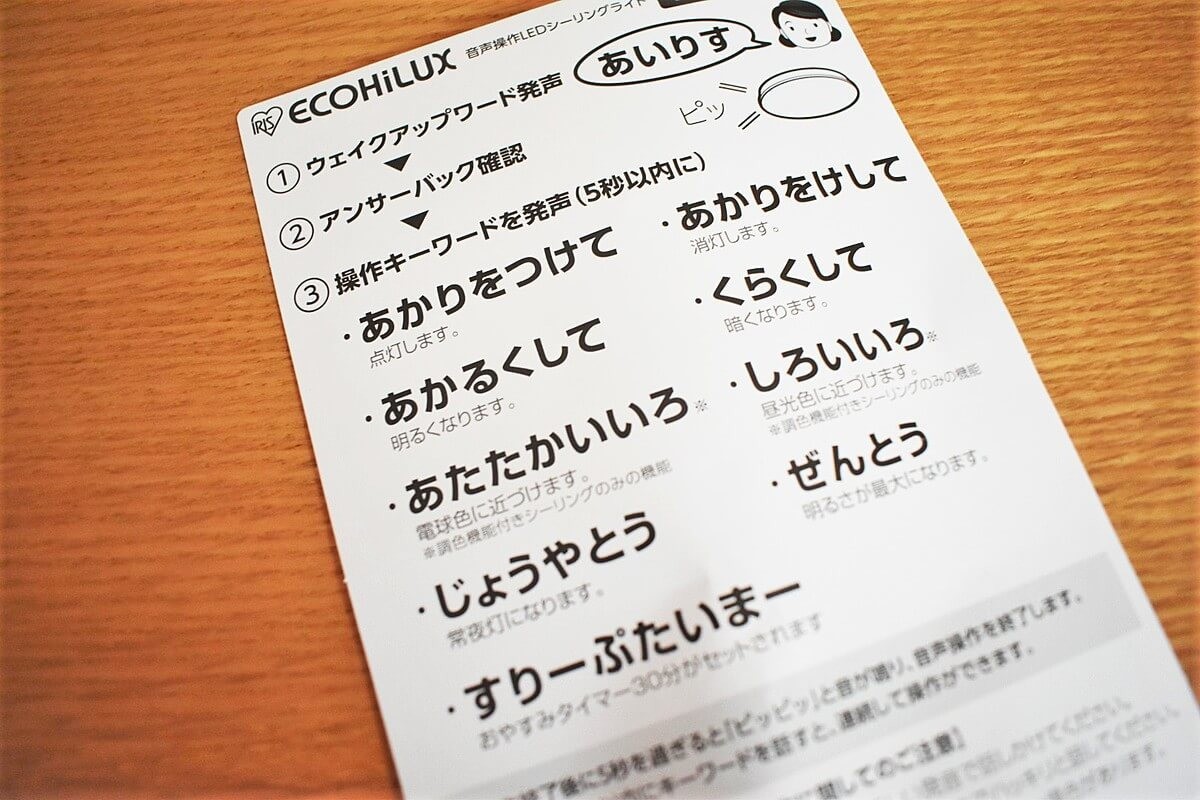 IRIS ECOHiLUX 音声操作LEDシーリングライト
あいりす
ピッ
① ウェイクアップワード発声
▼
② アンサーバック確認
▼
③ 操作キーワードを発声(5秒以内に)
・あかりをつけて
点灯します。
・あかりをけして
消灯します。
・あかるくして
明るくなります。
・くらくして
暗くなります。
・あたたかいいろ※
電球色に近づけます。
※調色機能付きシーリングのみの機能
・しろいいろ※
昼光色に近づけます。
※調色機能付きシーリングのみの機能
・じょうやとう
常夜灯になります。
・ぜんとう
明るさが最大になります。
・すりーぷたいまー
おやすみタイマー30分がセットされます
終了後に5秒を過ぎると「ピッピッ」と音が鳴り、音声操作を終了します。
にキーワードを話すと、連続して操作ができます。
関してのご注意】
発音で話しかけてください。
ハッキリと話してください。
場合があります。